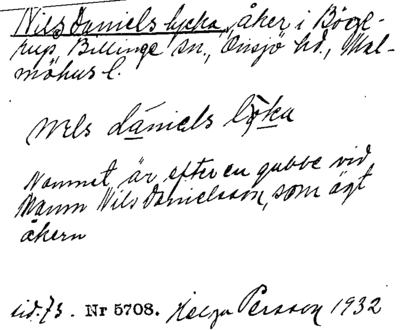 Nils Daniels lycka, åker i Böge-
rup, Billinge sn., Onsjö hd., Mal-
möhus l.
nels dániels löka
Namnet är efter en gubbe vid
namn Nils Danielsson, som ägt
åkern
Nr 5708. Helga Persson 1932